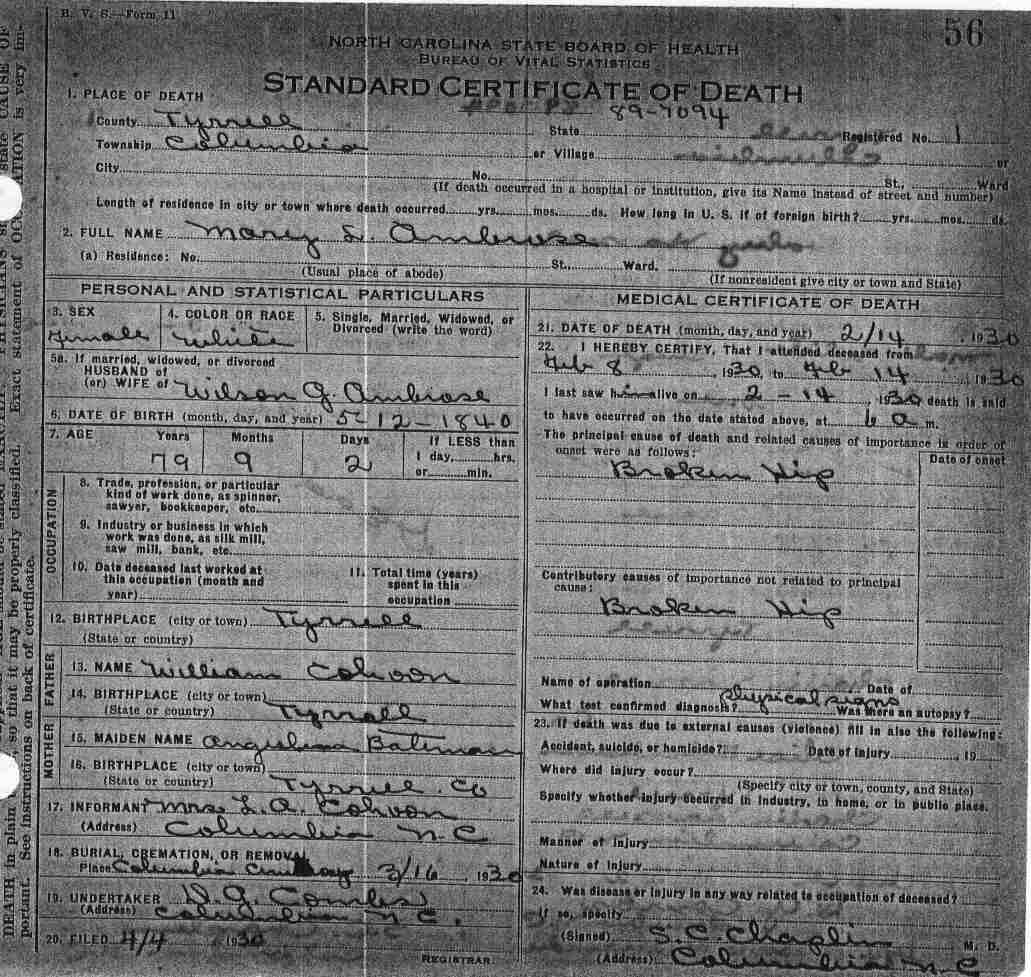 N. C. V. S.—Form 11
56
NORTH CAROLINA STATE BOARD OF HEALTH
BUREAU OF VITAL STATISTICS
STANDARD CERTIFICATE OF DEATH
89-7094
1. PLACE OF DEATH
County Tyrrell State Registered No. 1
Township Columbia or Village or
City No. St., Ward
(If death occurred in a hospital or institution, give its Name instead of street and number)
Length of residence in city or town where death occurred yrs. mos. ds. How long in U. S. if of foreign birth? yrs. mos. ds.
2. FULL NAME Mary L. Ambrose
(a) Residence: No. St., Ward.
(Usual place of abode) (If nonresident give city or town and State)
PERSONAL AND STATISTICAL PARTICULARS
3. SEX 4. COLOR OR RACE 5. Single, Married, Widowed, or
Divorced (write the word)
Female White
5a. If married, widowed, or divorced
HUSBAND of
(or) WIFE of Wilson G. Ambrose
6. DATE OF BIRTH (month, day, and year) 5-12-1840
7. AGE Years Months Days If LESS than
1 day, hrs.
79 9 2 or min.
OCCUPATION
8. Trade, profession, or particular
kind of work done, as spinner,
sawyer, bookkeeper, etc.
9. Industry or business in which
work was done, as silk mill,
saw mill, bank, etc.
10. Date deceased last worked at
this occupation (month and
year)
11. Total time (years)
spent in this
occupation
12. BIRTHPLACE (city or town) Tyrrell
(State or country)
FATHER
13. NAME William Cohoon
14. BIRTHPLACE (city or town)
(State or country) Tyrrell
MOTHER
15. MAIDEN NAME Angelina Bateman
16. BIRTHPLACE (city or town)
(State or country) Tyrrell Co
17. INFORMANT Mrs L. A. Cohoon
(Address) Columbia N C
18. BURIAL, CREMATION, OR REMOVAL
Place Columbia 3/16 1930
19. UNDERTAKER D. G. Combs
(Address) Columbia N C.
20. FILED 4/4 1930
REGISTRAR.
MEDICAL CERTIFICATE OF DEATH
21. DATE OF DEATH (month, day, and year) 2/14, 1930
22. I HEREBY CERTIFY, That I attended deceased from
Feb 8, 1930, to Feb 14, 1930
I last saw h alive on 2-14, 1930 death is said
to have occurred on the date stated above, at 6 a m.
The principal cause of death and related causes of importance in order of
onset were as follows:
Date of onset
Broken Hip
Contributory causes of importance not related to principal
cause:
Broken Hip
Name of operation Date of
What test confirmed diagnosis? physical signs Was there an autopsy?
23. If death was due to external causes (violence) fill in also the following:
Accident, suicide, or homicide? Date of injury 19
Where did injury occur?
(Specify city or town, county, and State)
Specify whether injury occurred in industry, in home, or in public place.
Manner of injury
Nature of injury
24. Was disease or injury in any way related to occupation of deceased?
If so, specify
(Signed) S. C. Chaplin M. D.
(Address) Columbia N C
DEATH in plain so that it may be properly classified. Exact statement of OCCUPATION is very im-
portant. See instructions on back of certificate.